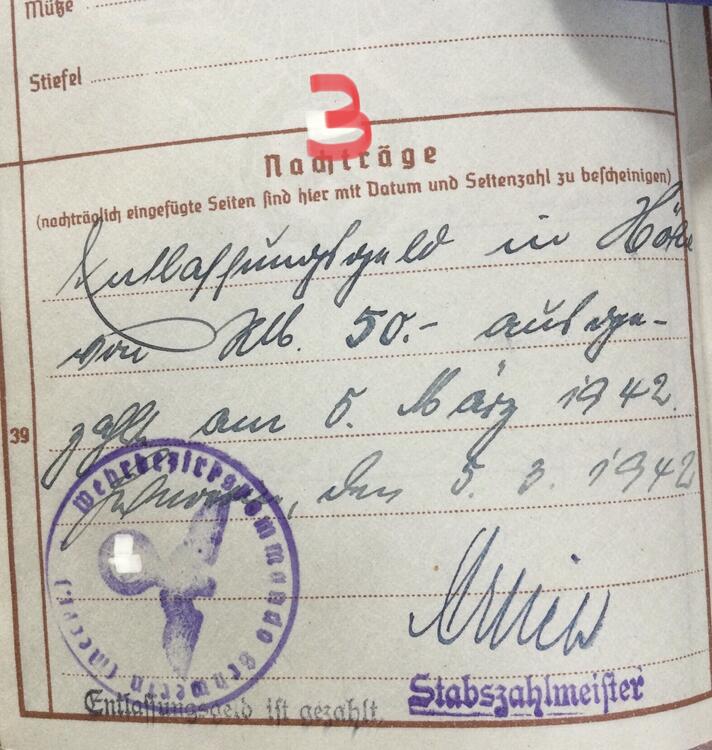 Mütze
Stiefel
3
Nachträge
(nachträglich eingefügte Seiten sind hier mit Datum und Seitenzahl zu bescheinigen)
Entlassungsgeld in Höhe
von RM. 50.- ausge-
zahlt am 5. März 1942.
39
Schwerin, den 5. 3. 1942
Wehrbezirkskommando Schwerin (Meckl.)
Stabszahlmeister
Entlassungsgeld ist gezahlt.